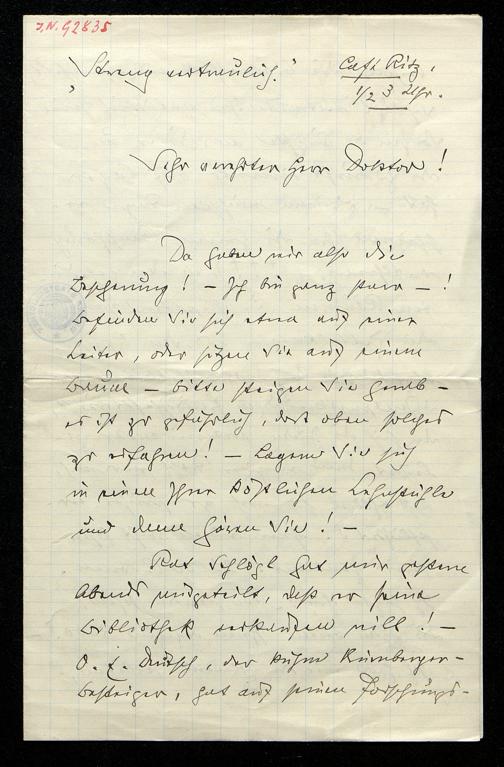 I.N. 92835
„Streng vertraulich."
Café Ritz,
1/2 3 Uhr.
Sehr verehrter Herr Doktor!
Da haben wir also die
Bescherung! – Ich bin ganz starr –!
Befinden Sie sich etwa auf einer
Leiter, oder sitzen Sie auf einem
Baume – bitte steigen Sie herab –
es ist zu gefährlich, dort oben solches
zu erfahren! – Lagern Sie sich
in einen Ihrer köstlichen Lehnstühle
und dann hören Sie! –
Rat Schlögl hat mir gestern
Abend mitgeteilt, daß er seine
Bibliothek verkaufen will! –
O. E. Deutsch, der kühne Kürnberger-
besteiger, hat auf seinen Forschungs-